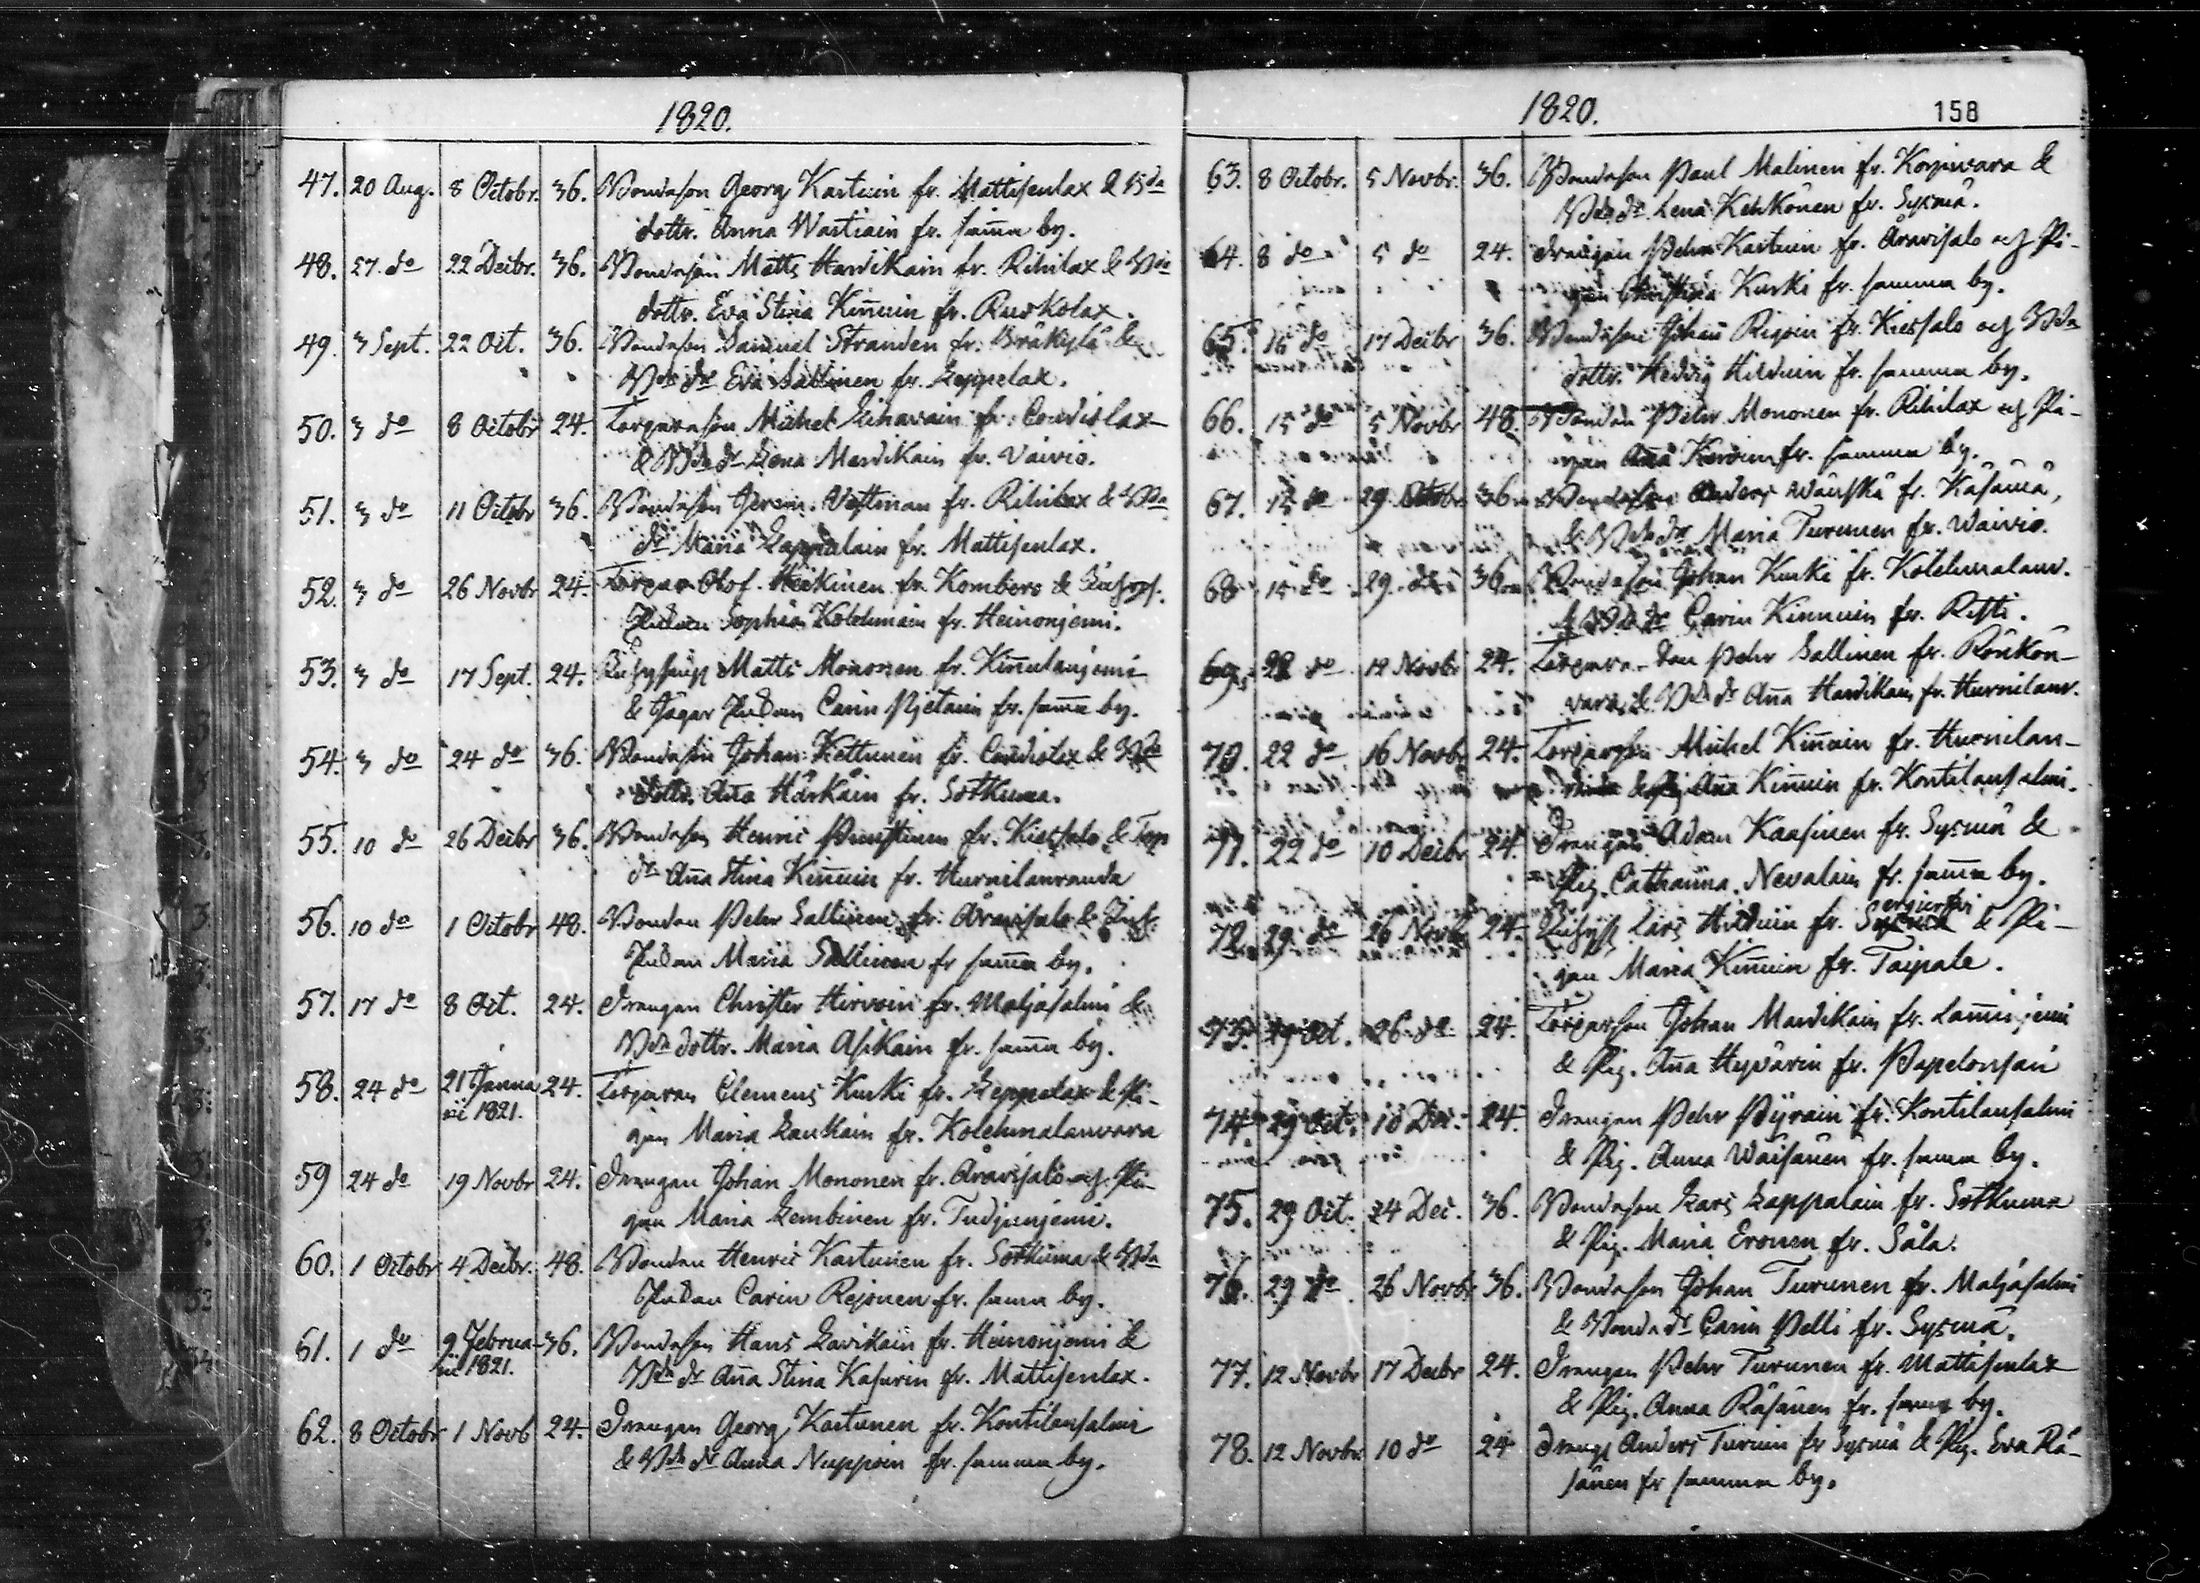 1820.
47. 20 Aug. 8 Octobr. 36. Bondason Georg Kartuin fr. Mattisenlax & Bda
dottr. Anna Wartiain fr. sam̄a by.
48. 27 do 22 Decbr. 36. Bondason Matts Hardikain fr. Rihilax & Bda
dottr. Eva Stina Kin̄uin fr. Ruokolax.
49. 3 Sept. 22 Oct. 36. Bondason Samuel Stranden fr. Bräkylä &
Bda dr Eva Sallinen fr. Leppelax.
50. 3 do 8 Octobr 24. Torparason Michel fr. Coudislax
& Bda dr Lena Mardikain fr. Vaivio.
51. 3 do 11 Octobr 36. Bondason Jerem. Vestman fr. Rihilax & Bda
dr Maria Lappalain fr. Mattisenlax.
52. 3 do 26 Novbr 24. Torpar. Olof Heikinen fr. Kombero & Inhys.
Enkan Sophia Kolehmain fr. Heinonjemi.
53. 3 do 17 Sept. 24. Inhyshusj Matts Mononen fr. Kin̄ulanjemi
& Jägar Enkan Carin Pjetain fr. sam̄a by.
54. 3 do 24 do 36. Bondason Johan Kettunen fr. Coudislax & Bda
dottr. An̄a Härkäin fr. Sotkuma.
55. 10 do 26 Decbr 36. Bondason Henric Pun̄tinen fr. Kiessalo & Torp
dr An̄a Stina Kin̄uin fr. Hurnilanranda
56. 10 do 1 Octobr 48. Bonden Pehr Sallinen fr. Aravisalo & Inh.
Enkan Maria Sallinen fr sam̄a by.
57. 17 do 8 Oct. 24. Drengen Christer Hirvoin fr. Maljasalmi &
Bda dottr. Maria Asikain fr. sam̄a by.
58. 24 do 21 Janua 24. Torparen Clemens Kurki fr. Leppelax & Pi-
rii 1821.
gan Maria Laukain fr. Kolehmalanvara
59 24 do 19 Novbr 24. Drengen Johan Mononen fr. Aravisalo och Pi-
gan Maria Lembinen fr. Tudjunjemi.
60. 1 Octobr 4 Decbr. 48. Bonden Henric Kartunen fr. Sotkuma & Bda
Enkan Carin Rejonen fr. sama by.
61. 1 do 9 Februa- 36. Bondason Hans Lavikain fr. Heinonjemi &
rii 1821.
Bda dr An̄a Stina Kasurin fr. Mattisenlax.
62. 8 Octobr 1 Novb 24. Drengen Georg Kartunen fr. Kontilansalmi
& Bda dr Anna Nuppoin fr. samma by.
1820. 158
63. 8 Octobr. 5 Novbr. 36. Bondason Paul Malinen fr. Korpivara &
Bda dr Lena Kehkönen fr. Sysmä.
64. 8 do 5 do 24. Drengen Pehr Kartuin fr. Aravisalo och Pi-
gan Christina Kurki fr. samma by.
65. 15 do 17 Decbr 36. Bondason Johan Rigoin fr. Kiessalo och Bda
dottr. Hedvig Hilduin fr. samma by.
66. 15 do 5 Novbr 48. Bonden Pehr Mononen fr. Rihilax och Pi-
gan An̄a fr. samma by.
67. 15 do 29 Octobr 36. Bondason Anders Wänskä fr. Käsämä,
& Bda dr Maria Turunen fr. Waivio.
68 15 do 29. do 36. Bondason Johan Kurki fr. Kolehmalanv.
& Bda dr Carin Kinnuin fr. Risti.
69. 22 do 12 Novbr 24. Torpare-Son Pehr Sallinen fr. Rönkön-
vara, & Bda dr An̄a Hardikain fr. Hurnilanr.
70. 22 do 16 Novbr 24. Torparson Michel Kin̄uin fr. Hurnilan-
randa & Pig An̄a Kin̄uin fr. Kontilansalmi.
71. 22 do 10 Decbr 24. Drengen Adam Kaasinen fr. Sysmä &
Pig. Catharina Nevalain fr. sam̄a by.
72. 29 do 26 Novbr 24. Inhyss Lars Hilduin fr. & Pi-
gan Maria Kin̄uin fr. Taipale.
73. 29 Oct. 26 do 24. Torparson Johan Mardikain fr. Lam̄injemi
& Pig. An̄a Hyvärin fr. Papelonsari
74. 29 Oct. 10 Dec. 24. Drengen Pehr Pyräin fr. Kontilansalmi
& Pig. Anna Wäisänen fr. sama by.
75. 29 Oct. 24 Dec. 36. Bondason Lars Lappalain fr. Sotkuma
& Pig. Maria Eronen fr. Såla.
76. 29 do 26 Novbr 36. Bondason Johan Turunen fr. Maljasalmi
& Bonda dr Carin Pelli fr. Sysmä.
77. 12 Novbr 17 Decbr 24. Drengen Pehr Turunen fr. Mattisenlax
& Pig. Anna Räsänen fr. sama by.
78. 12 Novbr. 10 do 24 Drengs Anders Turuin fr Sysmä & Pig. Eva Rä-
sänen fr samma by.